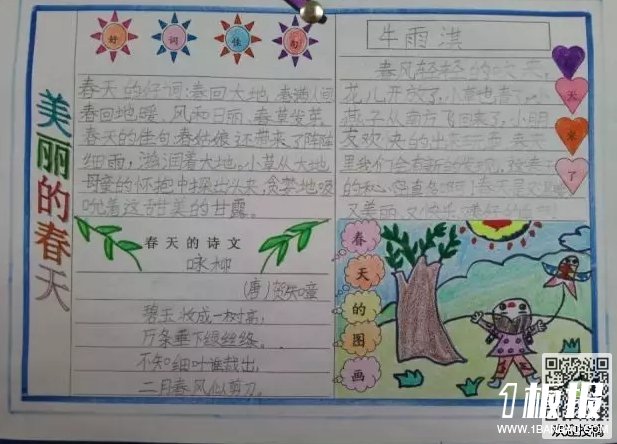 美丽的春天
好词佳句
春天的好词:春回大地、春满人间
春回地暖、风和日丽、春草发芽、
春天的佳句:春姑娘还带来了阵阵
细雨,滋润着大地。小草从大地
母亲的怀抱中探出头来,贪婪地吸
吮着这甜美的甘露。
春天的诗文
咏柳
(唐)贺知章
碧玉妆成一树高,
万条垂下绿丝绦。
不知细叶谁裁出,
二月春风似剪刀。
牛雨淇
春风轻轻的吹来,
花儿开放了,小草也
燕子从南方飞回来了,小朋
友欢快的
里我们会有新的发现,
的私
又美丽,又
春天来了
春天的图画
1板报
WWW.1BANBAO.COM
欢迎投稿